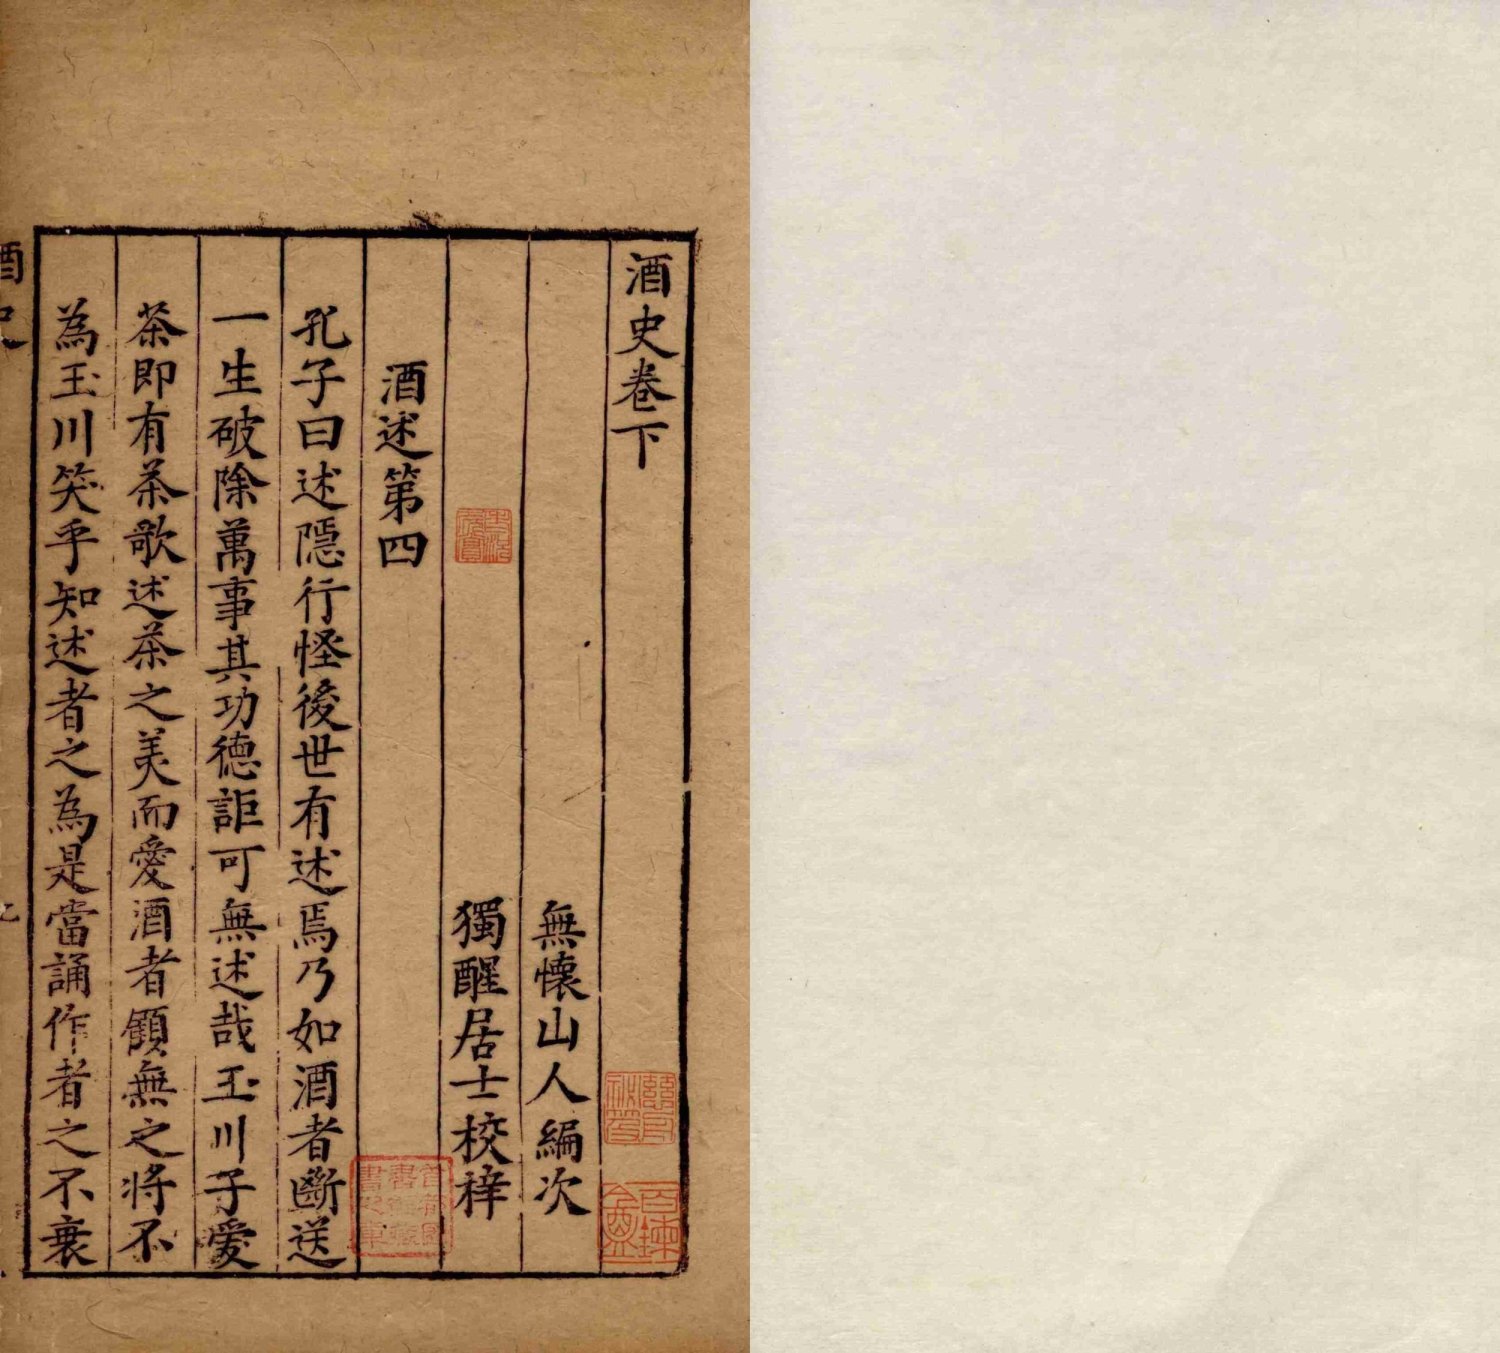 酒史卷下
無懷山人編次
獨醒居士校梓
酒述第四
孔子曰述隱行怪後世有述焉乃如酒者斷送
一生破除萬事其功德詎可無述哉玉川子愛
茶即有茶歌述茶之美而愛酒者顧無之將不
為玉川笑乎知述者之為是當誦作者之不衰
酒史